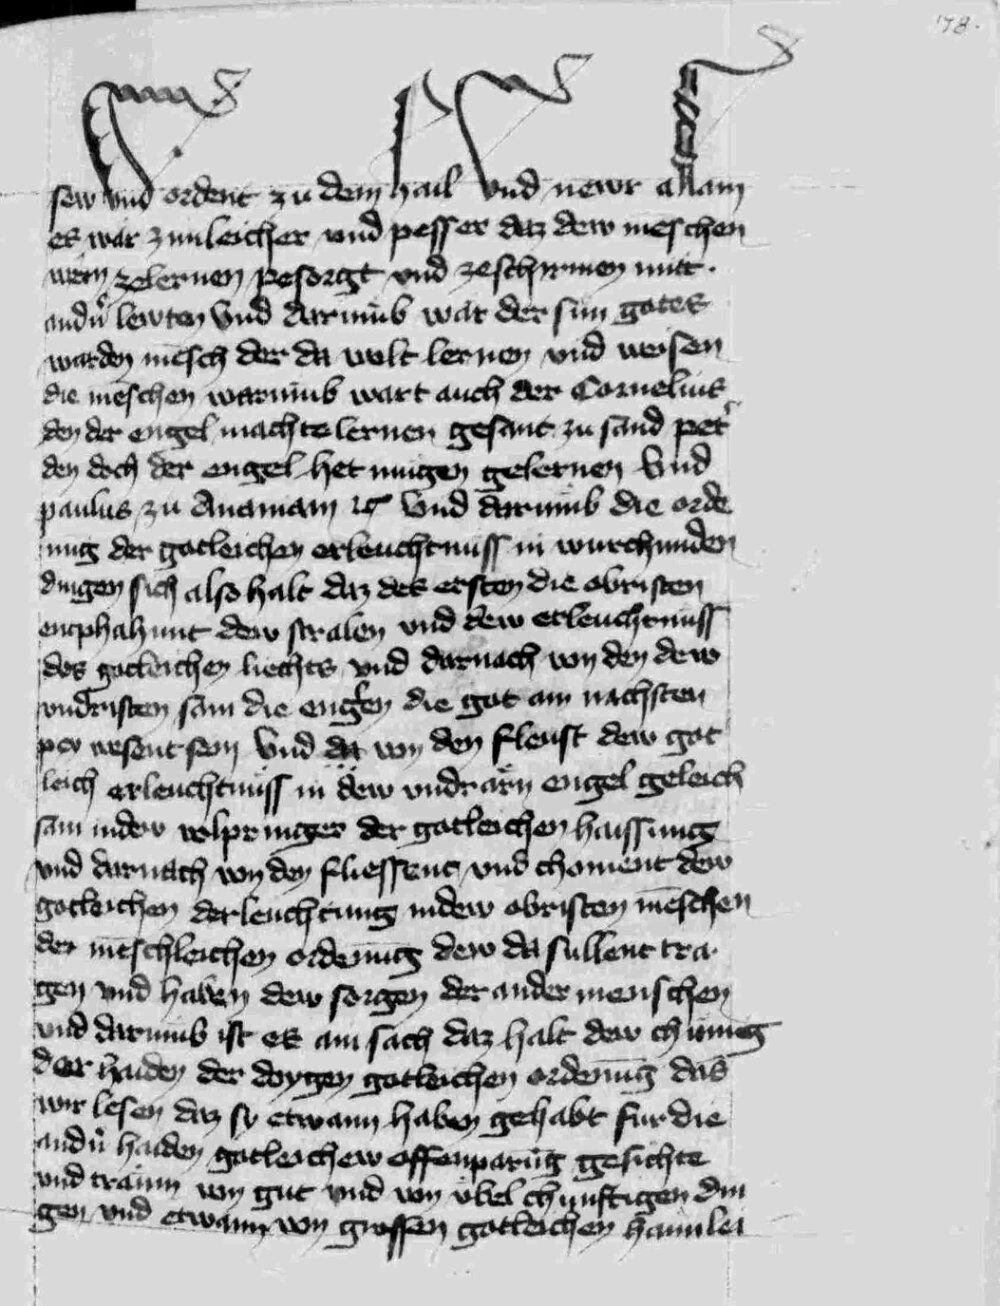 178.
sew und ordent zu dem hail und newr allain
es wär zimleicher und pesser daz dew meschen
wern zelernen pesorgt und zeschirmen mitt
andn lewten Und darumb war der sun gotes
warden mesch der da wolt lernen und weisen
die meschen warumb wart auch der Cornelius
den der engel machte lernen gesant zu sand pet
den doch der engel het mugen gelernen Und
paulus zu Ananiam Und darumb die orde
nug der gotleichen erleuchtnuss in wurchunden
dingen sich also halt daz des ersten die obristen
emphahunt dew stralen und dew erleuchtnuss
des gotleichen liechts und darnach von den dew
undristen sam die englen die got am nachsten
per wesent sein Und da von den fleust dew got
leich erleuchtnuss in dew undrärn engel geleich
sam in dew volpringer der gotleichen haissung
und darnach von den fliessent und choment dew
gotleichen derleuchtung in dew obristen meschen
der meschleichen ordenug dew da sullent tra
gen und haben dew sorgen der ander menschen
und darumb ist es ain sach daz halt dew chunig
der haiden der doygen gotleichen ordenug das
wir lesen daz sy etwann haben gehabt fur die
andn haiden gotleichew offenparug gesichte
und traum von gut und von übel chunftigen din
gen und etwann von grossen gotleichen haimlei